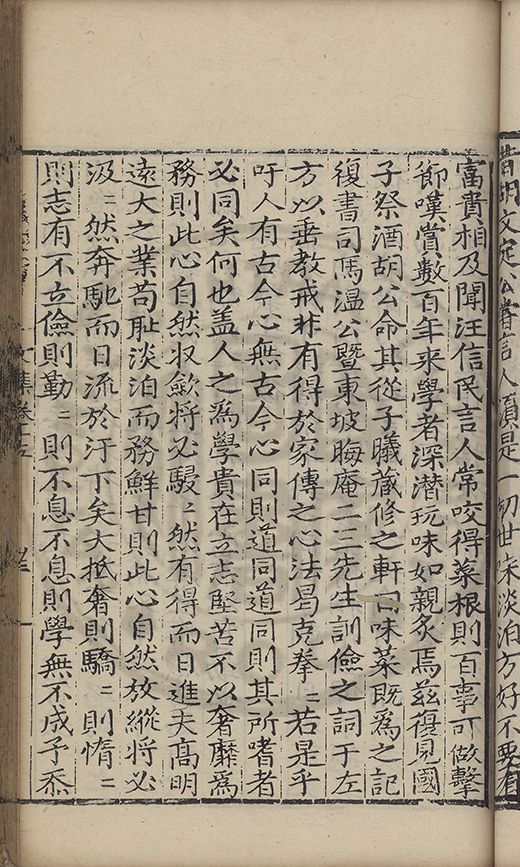 昔胡文定公嘗言人須是一切世味淡泊方好不要有
富貴相及聞汪信民言人常咬得菜根則百事可做擊
節嘆賞數百年來學者深潛玩味如親炙焉兹復見國
子祭酒胡公命其從子曦藏修之軒曰味菜既為之記
復書司馬温公暨東坡晦庵二三先生訓儉之詞于左
方以垂教戒非有得於家傳之心法曷克拳〻若是乎
吁人有古今心無古今心同則道同道同則其所嗜者
必同矣何也盖人之為學貴在立志堅苦不以奢靡為
務則此心自然収歛將必駸〻然有得而日進夫髙明
逺大之業苟耻淡泊而務鮮甘則此心自然放縱將必
汲〻然奔馳而日流於汙下矣大抵奢則驕〻則惰〻
則志有不立儉則勤〻則不息不息則學無不成予忝
文集卷十五